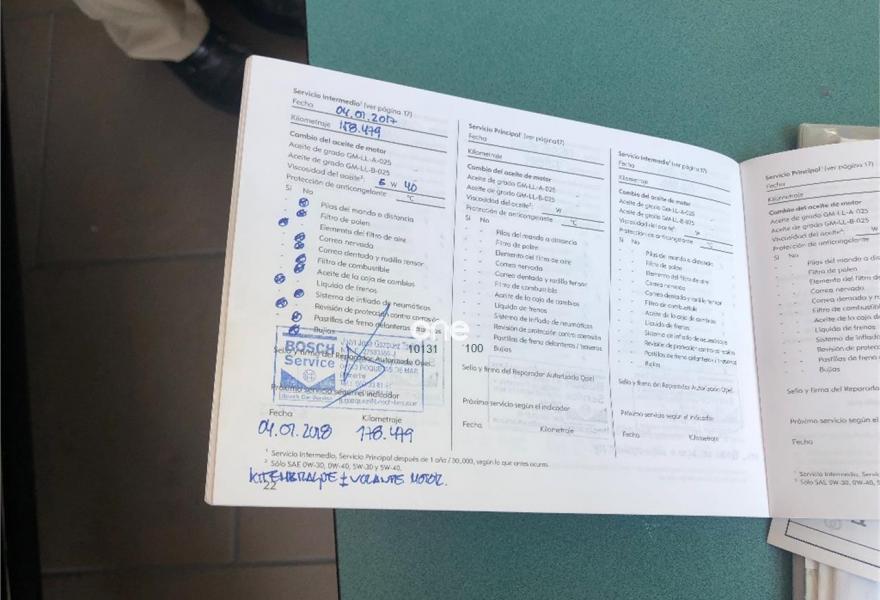 Servicio Intermedio¹ (ver página 17)
Fecha 04.01.2017
Kilometraje 158.479
Cambio del aceite de motor
Aceite de grado GM-LL-A-025
Aceite de grado GM-LL-B-025
Viscosidad del aceite²: 5 W 40
Protección de anticongelante °C
Si No
Pilas del mando a distancia
Filtro de polen
Elemento del filtro de aire
Correa nervada
Correa dentada y rodillo tensor
Filtro de combustible
Aceite de la caja de cambios
Líquido de frenos
Sistema de inflado de neumáticos
Revisión de protección contra corrosión
Pastillas de freno delanteras
Bujías
BOSCH
Service
Sello y firma del Reparador Autorizado Opel
Próximo servicio según el indicador
Fecha Kilometraje
04.01.2018 178.479
¹ Servicio Intermedio, Servicio Principal después de 1 año / 30.000, según lo que antes ocurra.
² Sólo SAE 0W-30, 0W-40, 5W-30 y 5W-40.
KIT EMBRAGUE + VOLANTE MOTOR.
22
Servicio Principal¹ (ver página 17)
Fecha
Kilometraje
Cambio del aceite de motor
Aceite de grado GM-LL-A-025
Aceite de grado GM-LL-B-025
Viscosidad del aceite²: W
Protección de anticongelante °C
Si No
Pilas de mando a distancia
Filtro de polen
Elemento del filtro de aire
Correa nervada
Correa dentada y rodillo tensor
Filtro de combustible
Aceite de la caja de cambios
Líquido de frenos
Sistema de inflado de neumáticos
Revisión de protección contra corrosión
Pastillas de freno delanteras / traseras
Bujías
Sello y firma del Reparador Autorizado Opel
Próximo servicio según el indicador
Fecha Kilometraje
Servicio Intermedio¹ (ver página 17)
Fecha
Kilometraje
Cambio del aceite de motor
Aceite de grado GM-LL-A-025
Aceite de grado GM-LL-B-025
Viscosidad del aceite²: W
Protección de anticongelante °C
Si No
Pilas de mando a distancia
Filtro de polen
Elemento del filtro de aire
Correa nervada
Correa dentada y rodillo tensor
Filtro de combustible
Aceite de la caja de cambios
Líquido de frenos
Sistema de inflado de neumáticos
Revisión de protección contra corrosión
Pastillas de freno delanteras / traseras
Bujías
Sello y firma del Reparador Autorizado Opel
Próximo servicio según el indicador
Fecha Kilometraje
Servicio Principal¹ (ver página 17)
Fecha
Kilometraje
Cambio del aceite de motor
Aceite de grado GM-LL-A-025
Aceite de grado GM-LL-B-025
Viscosidad del aceite²: W
Protección de anticongelante
Si No
Pilas del mando a
Filtro de polen
Elemento del filtro
Correa nervada
Correa dentada y
Filtro de combustible
Aceite de la caja
Líquido de frenos
Sistema de inflado
Revisión de
Pastillas de freno
Bujías
Sello y firma del Reparador
Próximo servicio según el
Fecha
¹ Servicio Intermedio,
² Sólo SAE 0W-30, 0W-40,
one
10131 100